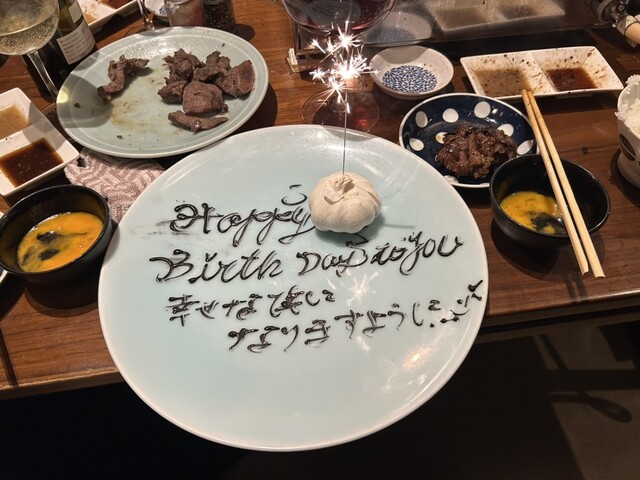 Happy
Birth Day to You
幸せな歳に
なりますように…